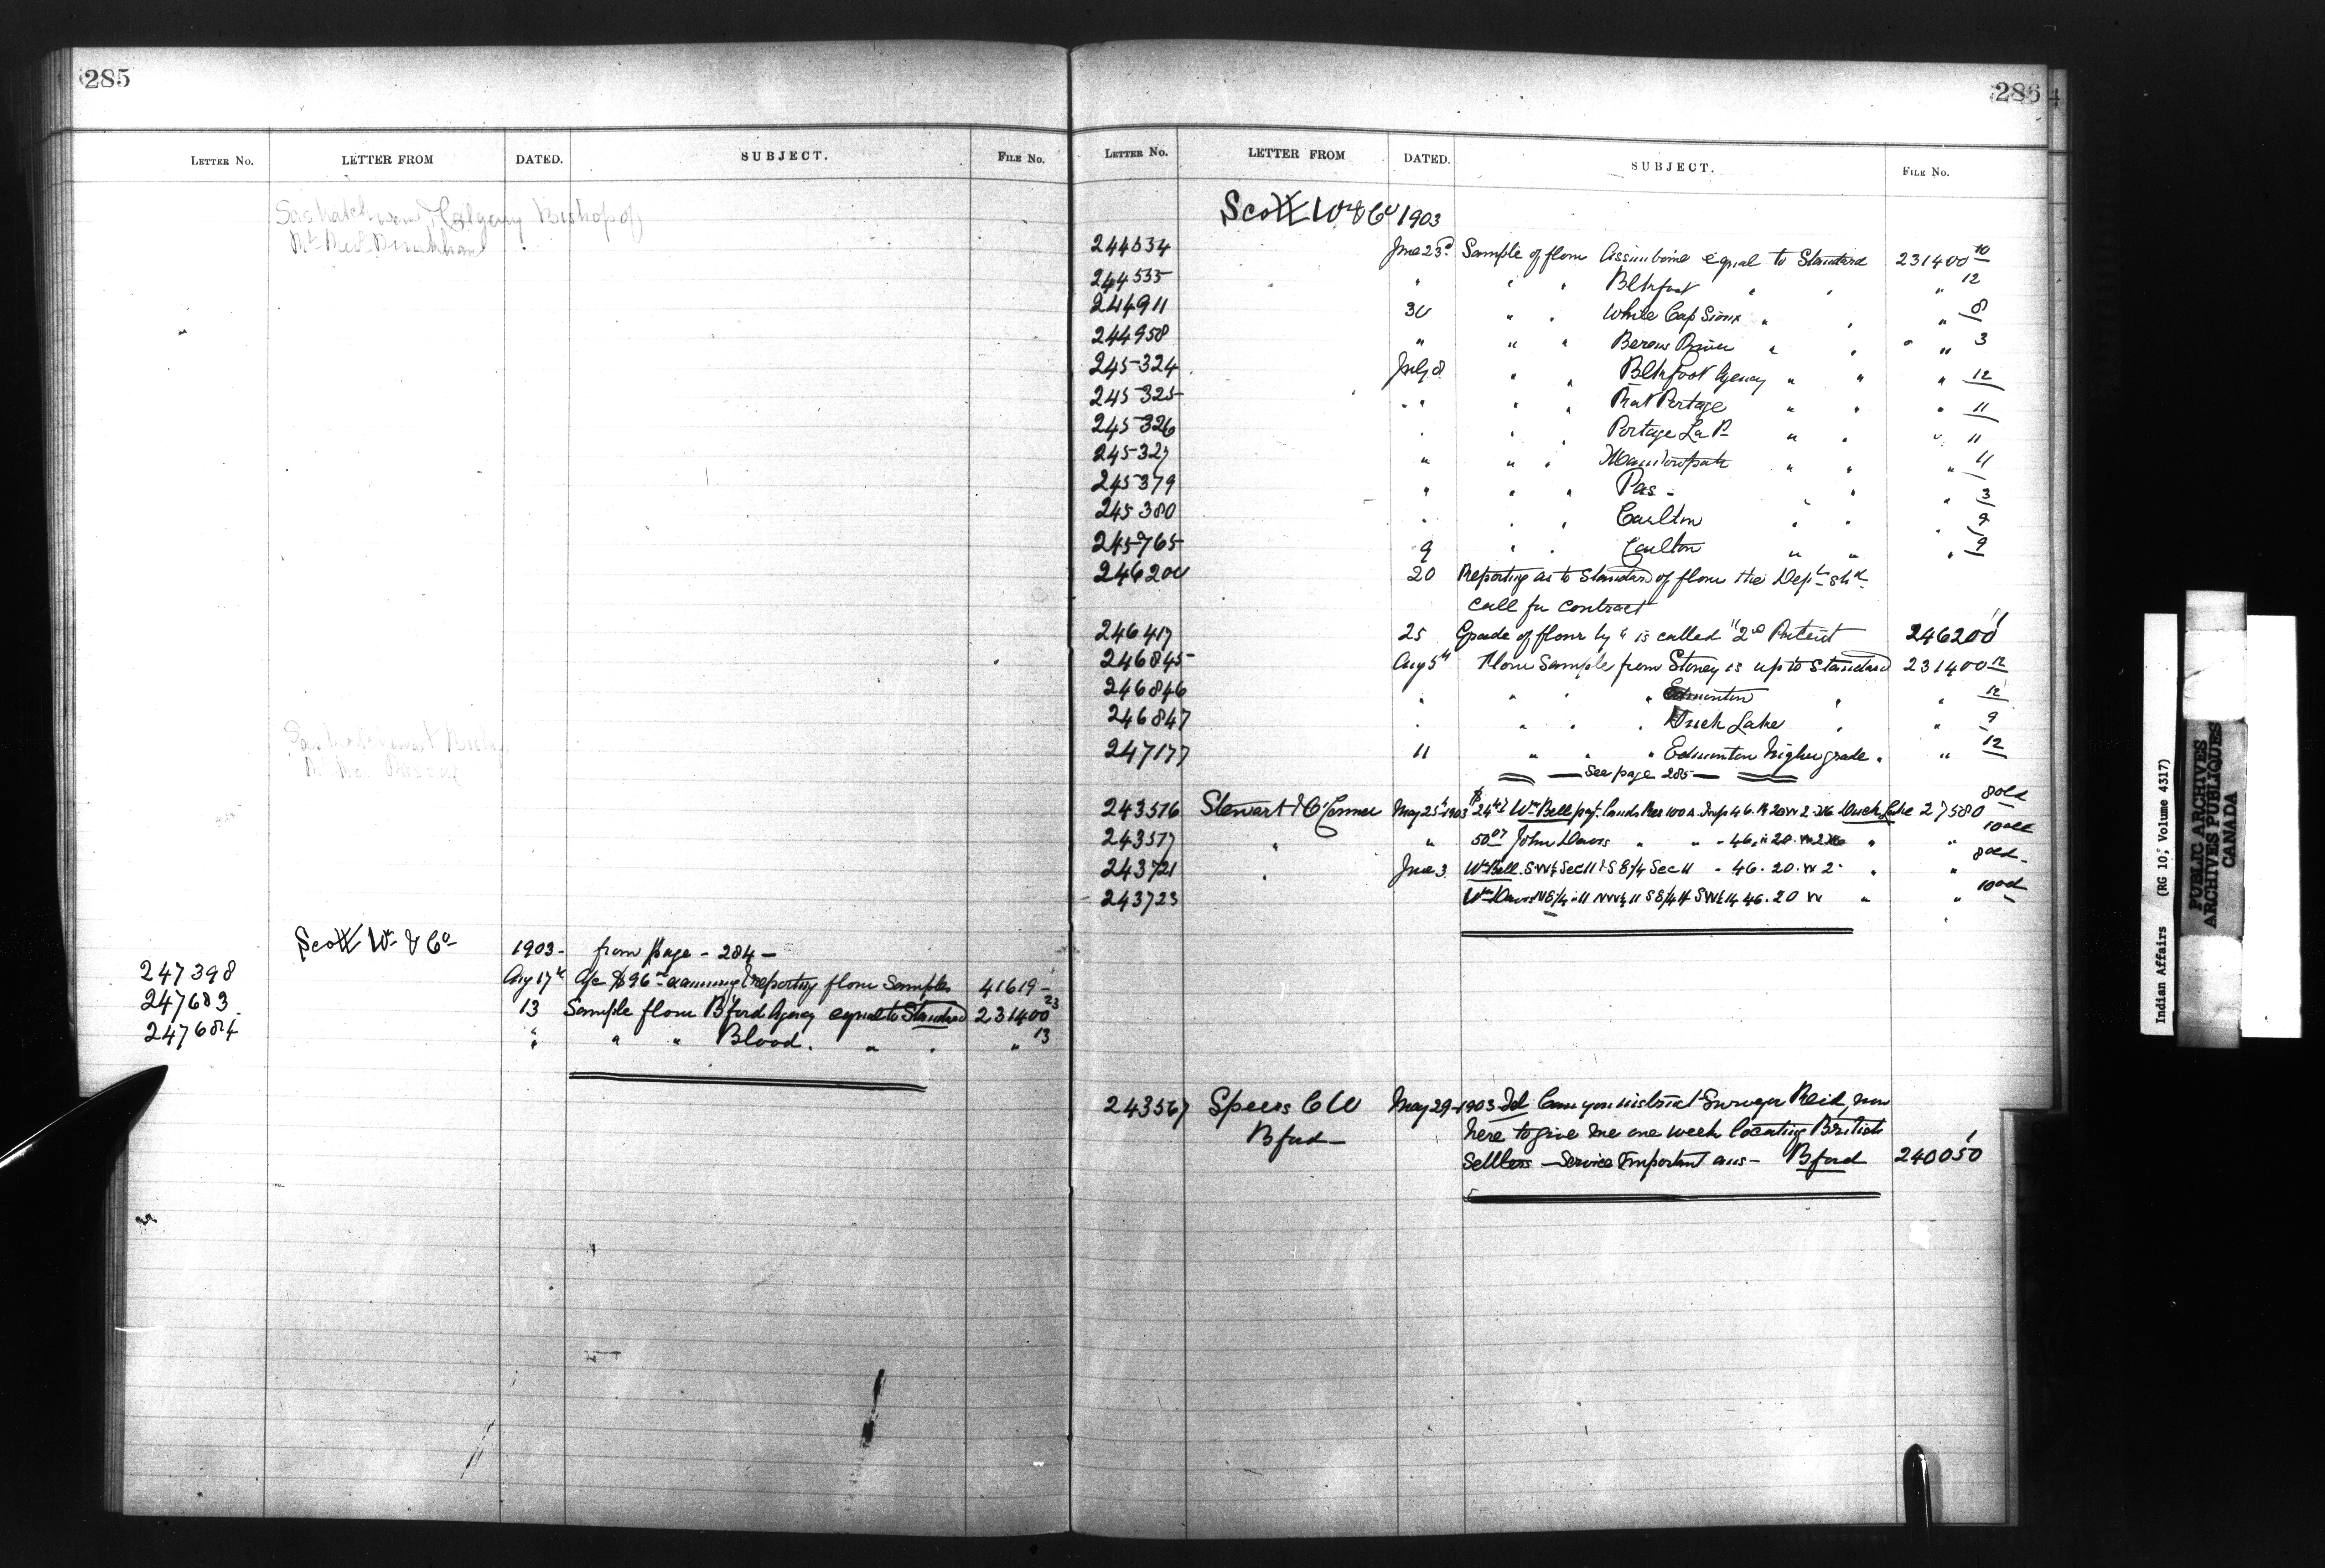 285
LETTER No. LETTER FROM DATED. SUBJECT. FILE No.
Calgary Bishop of
Scott Wm & Co 1903- from page - 284 -
247398 Aug 17th a/c $96 examining & reporting flour Samples 41619-1
247683 13 Sample flour B'ford Agency equal to Standard 231400 23
247684 " " " Blood. " " " 13
286
LETTER No. LETTER FROM DATED. SUBJECT. FILE No.
Scott Wm & Co 1903
244534 June 23d Sample of flour Assiniboine equal to Standard 231400 10
244535 " " " Blkfoot " " " 12
244911 30 " " White Cap Sioux " " " 8
244958 " " " Berens River " " " 3
245324 July 8 " " Blkfoot Agency " " " 12
245325 " " " Rat Portage " " " 11
245326 " " " Portage La P " " " 11
245327 " " " Manitowpah " " " 11
245379 " " " Pas - " " " 3
245380 " " " Carlton " " " 9
245765 9 " " Carlton " " " 9
246200 20 Reporting as to Standard of flour the Dept shd
call for contract
246417 25 Grade of flour by " is called "2nd Patent 246200 1
246845 Aug 5th Flour Sample from Stoney is up to Standard 231400 12
246846 " " " " Edmonton " " 12
246847 " " " " Duck Lake " " 9
247177 11 " " " Edmonton higher grade " " 12
— See page 285 —
243516 Stewart & O'Connor May 25th 1903 Wm Bell 46. R 20 W 2 Duck Lake 27580 8 old
243517 " " John Davis " " " 46 " 20 W 2 " " 10 old
243721 " June 3 Wm Bell. SW¼ Sec 11 & SE/4 Sec 11 " 46. 20. W 2 " " 8 old
243723 46. 20 W " " 10 old
243567 Speers C W May 29-1903 Tel Can you instruct Surveyor Reid, now
B'ford - here to give me one week locating British
Settlers - Service Important ans - B'ford 240050 1
Indian Affairs (RG 10, Volume 4317)
PUBLIC ARCHIVES
ARCHIVES PUBLIQUES
CANADA